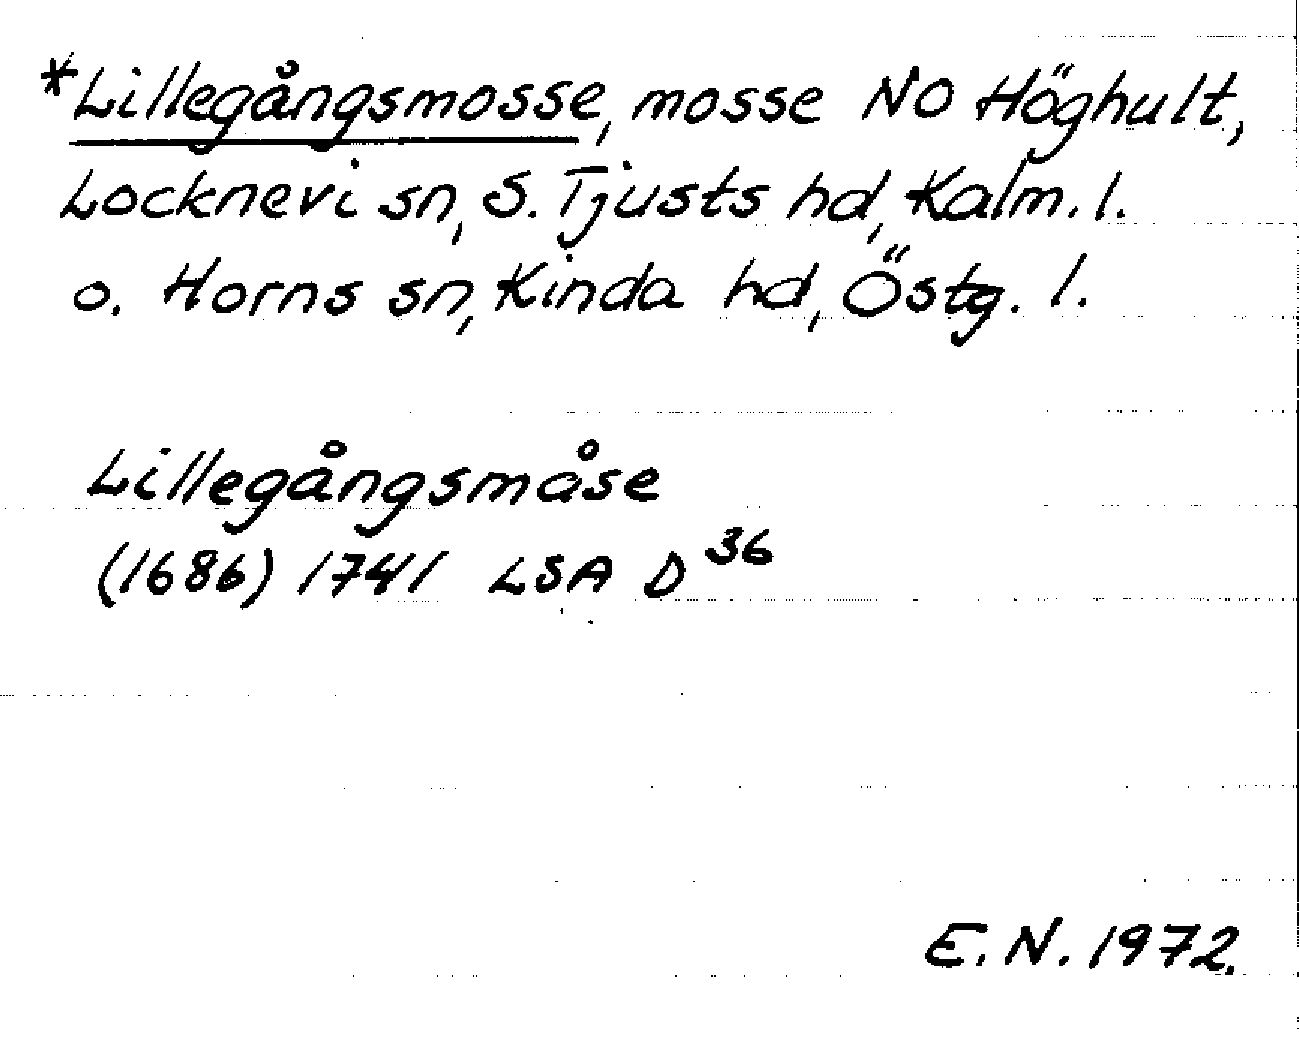 *Lillegångsmosse, mosse NO Höghult,
Locknevi sn, S. Tjusts hd, Kalm. l.
o. Horns sn, Kinda hd, Östg. l.
Lillegångsmåse
(1686) 1741 LSA D 36
E.N. 1972.